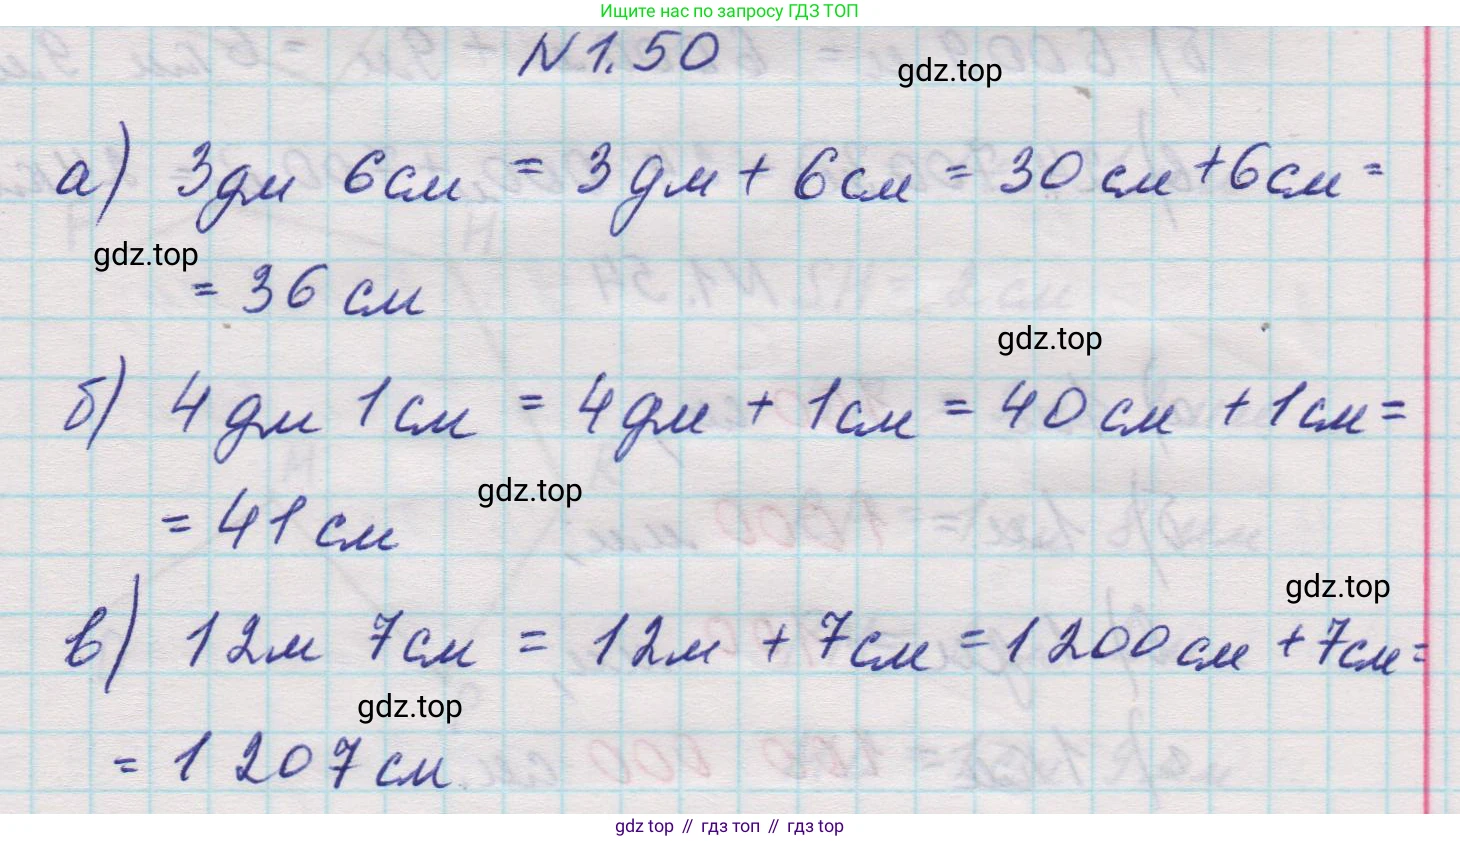 Ищите нас по запросу ГДЗ ТОП
N 1.50
gdz.top
а) 3дм 6см = 3дм + 6см = 30 см + 6см =
gdz.top
= 36 см
gdz.top
б) 4дм 1см = 4дм + 1см = 40см + 1см =
gdz.top
= 41см
gdz.top
в) 12м 7см = 12м + 7см = 1 200 см + 7см =
gdz.top
= 1 207 см
gdz top // гдз топ // гдз top